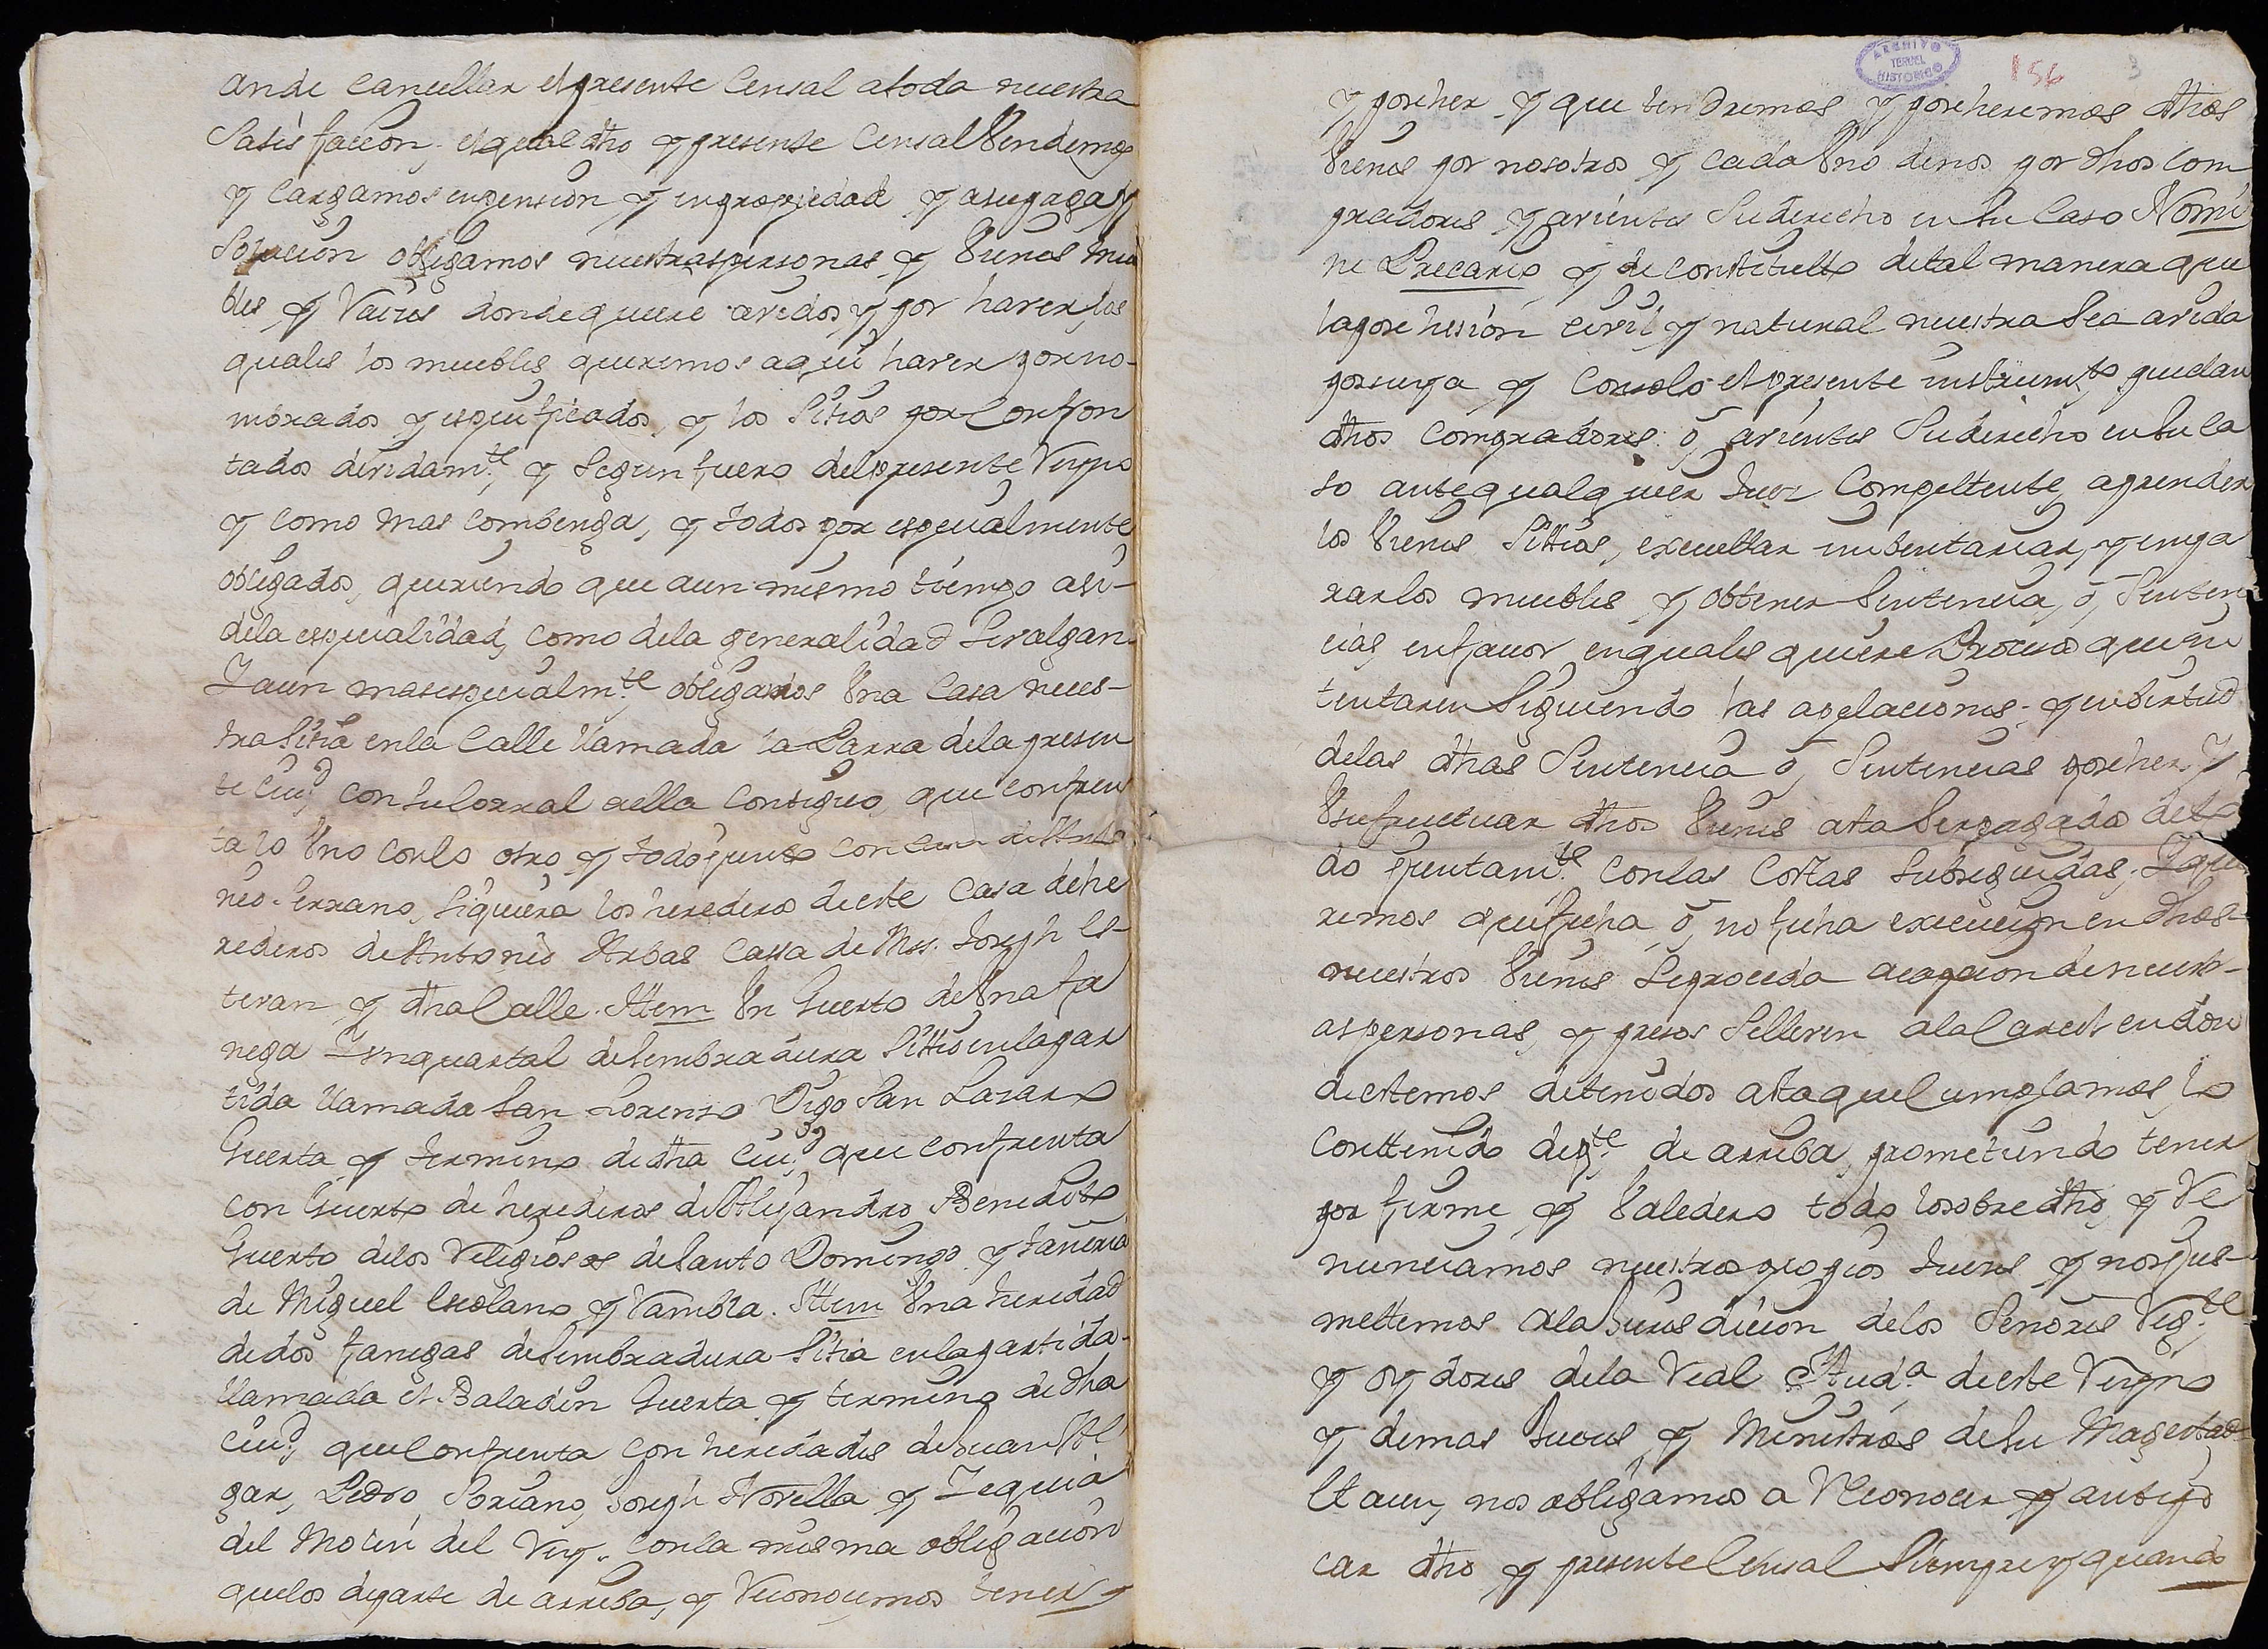 ande cancellar el presente Censal a toda nuestra
Satisfaccion, el qual dho y presente Censal Vendemos
y cargamos en pension y en propiedad y a su paga y
Solucion obligamos nuestras personas y Vienes mue
bles y Raices donde quiere avidos y por haver, los
quales los muebles queremos aqui haver por no-
mbrados y espicificados, y los Sitios por Confron
tados devidam.te y Segun fuero del presente Reyno
y como mas combenga, y todos por especialmente
obligados, queriendo que a un mismo tiempo asi-
de la especialidad, como de la generalidad Se valgan-
Y aun mas especialm.te obligamos Vna Casa nues-
tra Sitia en la Calle llamada la Parra de la presen
te Ciu.d con su Corral a ella Contiguo, que confren
ta lo Vno con lo otro y todo junto con Casa de Anto
nio Serrano, Siquiera los herederos de este Casa de he
rederos de Antonio Arbas Cassa de Mss. Joseph Es-
tevan y dha Calle. Ittem Vn Guerto de Vna fa
nega Y vn quartal de Sembradura Sittio en la par
tida llamada San Lorenzo Digo San Lazaro
Guerta y termino de dha Ciu.d que confrenta
con Guerto de herederos de Alejandro Benedito
Guerto de los Religiosos de Santo Domingo y tañeria
de Miguel Escolano y Rambla. Ittem Vna heredad
de dos fanegas de Sembradura Sitia en la partida-
llamada el Baladin Guerta y termino de dha
Ciu.d que Confrenta con heredades de Juan Al
gar, Pedro Soriano, Joseph Novella y Zequia
del Molin del Rey. Con la misma obligacion
que los de parte de arriba, y Reconocemos tener y
ARCHIVO
TERUEL
HISTORICO
156
3
y poseher y que tendremos y poseheremos dhos
Vienes por nosotros y cada Vno de nos por dhos com
pradores y avientes Su derecho en Su Caso Nomi
ne Precario y de constitutto de tal manera que
la posehesion civil y natural nuestra Sea avida
por suya y Con solo el presente instrum.to puedan
dhos compradores o, avientes Su derecho en Su ca
so ante qualquier Juez Compettente aprender
los Vienes Sittios, executtar imbentariar, y empa
rar los muebles y obtener Sentencia, o, Senten
cias, en favor en quales quiere Proceso que in
tentaren Siguiendo las apelaciones, y en birtud
de las dhas Sentencia o, Sentencias poseher, y
Vsufructuar dhos Vienes asta Ser pagados de to
do juntam.te con las Costas Subseguidas. Y que
remos que fecha o, no fecha execucion en dhos
nuestros Vienes Se proceda a capcion de nuestr-
as personas, y presos Se lleven a la Carcel en don
de estemos detenidos asta que Cumplamos, lo
Conttenido de p.te de arriba, prometiendo tener
por firme y Valedero todo lo sobre dho, y Re
nunciamos nuestros propios Jueces y nos jus-
mettemos a la Jurisdicion de los Señores Reg.te
y Oydores de la Real Aud.a de este Reyno
y demas Jueces y Ministros de Su Magestad
Et aun, nos obligamos a Reconocer y antipo
car dho y presente Censal Siempre y quando